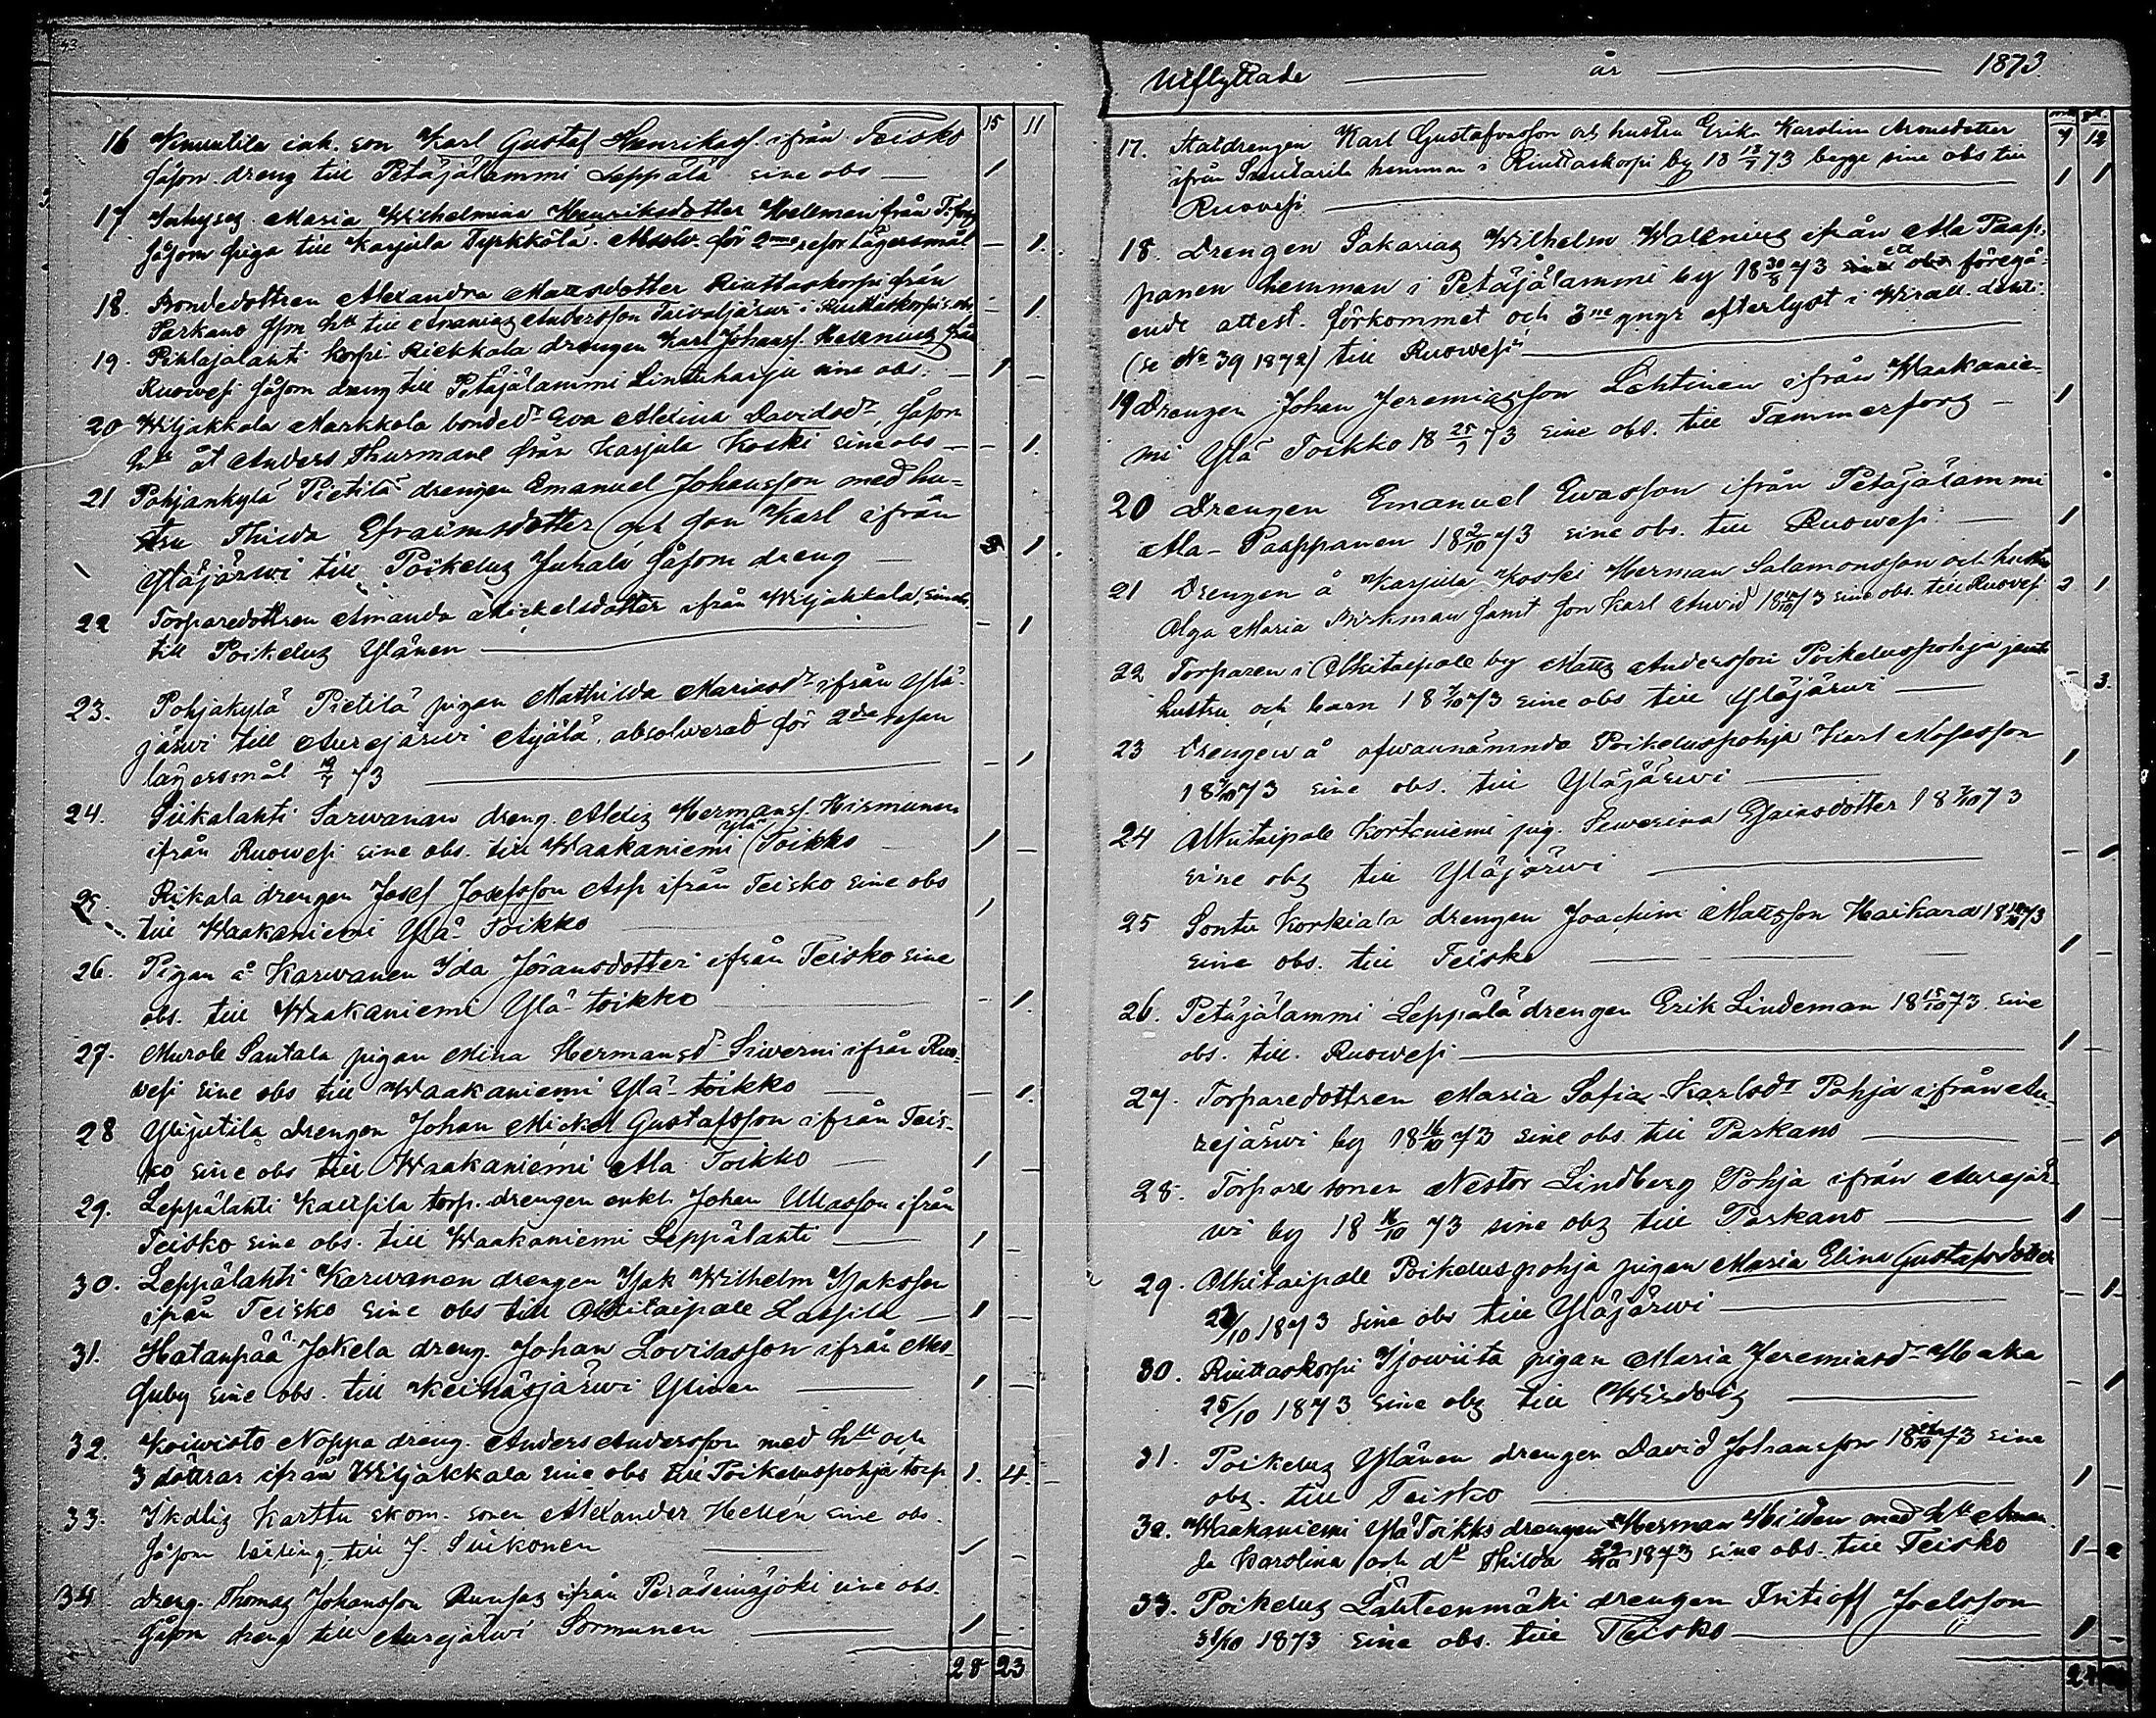 15 11
16 Kmuutila ink. son Karl Gustaf Henrikss. ifrån Teisko
såsom dreng till Petäjälammi Leppälä sine obs — 1
17 Inhyses Maria Wilhelmina Henriksdotter Hellman från T:fors
såsom piga till Karjula Tyrkkölä. Absolv. för 2ne resor lägersmål — 1.
18. Bondedottren Alexandra Mattsdotter Riuttaskorpi från
Parkano som h:u till Ananias Andersson Taivaljärwi i Riuttaskorpi s. obs. — 1.
19. Pihlajalahti Korpi Riekkala drengen Karl Johanss. Helenius från
Ruowesi såsom dreng till Petäjälammi Lintuharju sine obs. — 1 —
20 Wiljakkala Markkola bonded:r Eva Alexina Davidsd:r såsom
h:u åt Anders Thurmane från Karjula Koski sine obs — — 1.
21 Pohjankylä Pietilä drengen Emanuel Johansson med hu-
stru Thilda Efraimsdotter och son Karl ifrån
Yläjärwi till Poikelus Juhala såsom dreng — 1.
22 Torparedottren Amanda Mickelsdotter ifrån Wiljakkala, sine obs.
till Poikelus Ylänen — — 1
23. Pohjakylä Pietilä pigan Mathilda Mariasd:r ifrån Ylä-
järwi till Aurejärwi Äijälä, absolwerad för 2dra resan
lägersmål 19/7 73 — — 1
24. Siikalahti Sarwanan dreng. Alexis Hermanss. Hismunen
ifrån Ruowesi sine obs. till Waakaniemi Ylä Toikko 1 —
25. Rikala drengen Josef Josefsson Asp ifrån Teisko sine obs
till Waakaniemi Ylä-Toikko 1
26. Pigan å Karwanen Ida Johansdotter ifrån Teisko sine
obs. till Waakaniemi Ylä-toikko — 1.
27. Murole Santala pigan Mina Hermansd:r Siwerni ifrån Ruo-
wesi sine obs till Waakaniemi Ylä-toikko — — 1.
28 Ylijutila drengen Johan Mickel Gustafsson ifrån Teis-
ko sine obs till Waakaniemi Ala Toikko — 1 —
29. Leppälahti torp. drengen enkl. Johan Ullasson ifrån
Teisko sine obs. till Waakaniemi Leppälahti — 1 —
30. Leppälahti Karwanen drengen Isak Wilhelm Isaksson
ifrån Teisko sine obs till Alkitaipale Lassila — 1 —
31. Hatanpää Jokela dreng. Johan Lovisasson ifrån Mes-
suby sine obs. till Keihäsjärwi Ylinen — 1 —
32. Koiwisto Noppa dreng. Anders Andersson med h:u och
3 döttrar ifrån Wiljakkala sine obs till Poikeluspohja torp 1. 4.
33. Ikalis Karttu skom. sonen Alexander Hellén sine obs.
såsom lärling till J. Suikonen — 1 —
34. dreng. Thomas Johansson ifrån Peräseinäjoki sine obs.
såsom dreng till Aurejärwi Sormunen — 1 —
28 23
Utflyttade — år — 1873.
mk. qk.
7 12
17. Staldrengen Karl Gustafvasson och hustru Erika Karolina Aronsdotter
ifrån hemman i Riuttaskorpi by 18 18/7 73 begge sine obs till
Ruovesi — 1 1
18. Drengen Sakarias Wilhelm Wallenius ifrån Ala Paap-
panen hemman i Petäjälammi by 18 30/8 73 sine obs föregå-
ende attest. förkommet och 3ne gngr efterlyst i
(se No 39 1872) till Ruowesi —
19 Drengen Johan Jeremiasson Lehtinen ifrån Waakanie-
mi Ylä Toikko 18 25/9 73 sine obs. till Tammerfors — 1
20 Drengen Emanuel Ewasson ifrån Petäjälammi
Ala-Paappanen 18 2/10 73 sine obs. till Ruowesi — 1
21 Drengen å Karjula Koski Herman Salamonsson och hustru
Olga Maria Birkman samt son Karl Arvid sine obs. till Ruovesi 2 1.
22 Torparen i Alkitaipale by Matts Andersson Poikeluspohja jemte
hustru och barn 18 7/10 73 sine obs till Yläjärwi — 3.
23 Drengen å ofwannämnda Poikeluspohja Karl Mosesson
18 7/10 73 sine obs. till Yläjärwi — 1
24 Alkitaipale Korteniemi pig. Sewerina Esaiasdotter 18 7/10 73
sine obs till Yläjärwi — — 1
25 Sontu Korkiala drengen Joachim Mattsson Haikara 18 73
sine obs. till Teisko — 1 —
26. Petäjälammi Leppälä drengen Erik Lindeman 18 15/10 73 sine
obs. till Ruowesi — 1 —
27. Torparedottren Maria Sofia Karlsd:r Pohja ifrån Au-
rejärwi by 18 16/10 73 sine obs till Parkano — — 1
28. Torpare sonen Nestor Lindberg Pohja ifrån Aurejär-
wi by 18 16/10 73 sine obs till Parkano — 1 —
29. Alkitaipale Poikeluspohja pigan Maria Elina Gustafsdotter
/10 1873 sine obs till Yläjärwi — — 1
30. Riuttaskorpi pigan Maria Jeremiasd:r Maka
25/10 1873 sine obs till Wirdois — — 1
31. Poikelus Ylänen drengen David Johansson 18 73 sine
obs. till Teisko — 1 —
32. Waakaniemi Ylä Toikko drengen Herman Hilden med h:u Aman-
da Karolina och d:r Thilda 29/10 1873 sine obs. till Teisko 1 2
33. Poikelus Lähteenmäki drengen Fritioff Joelsson
31/10 1873 sine obs. till Teisko — 1 —